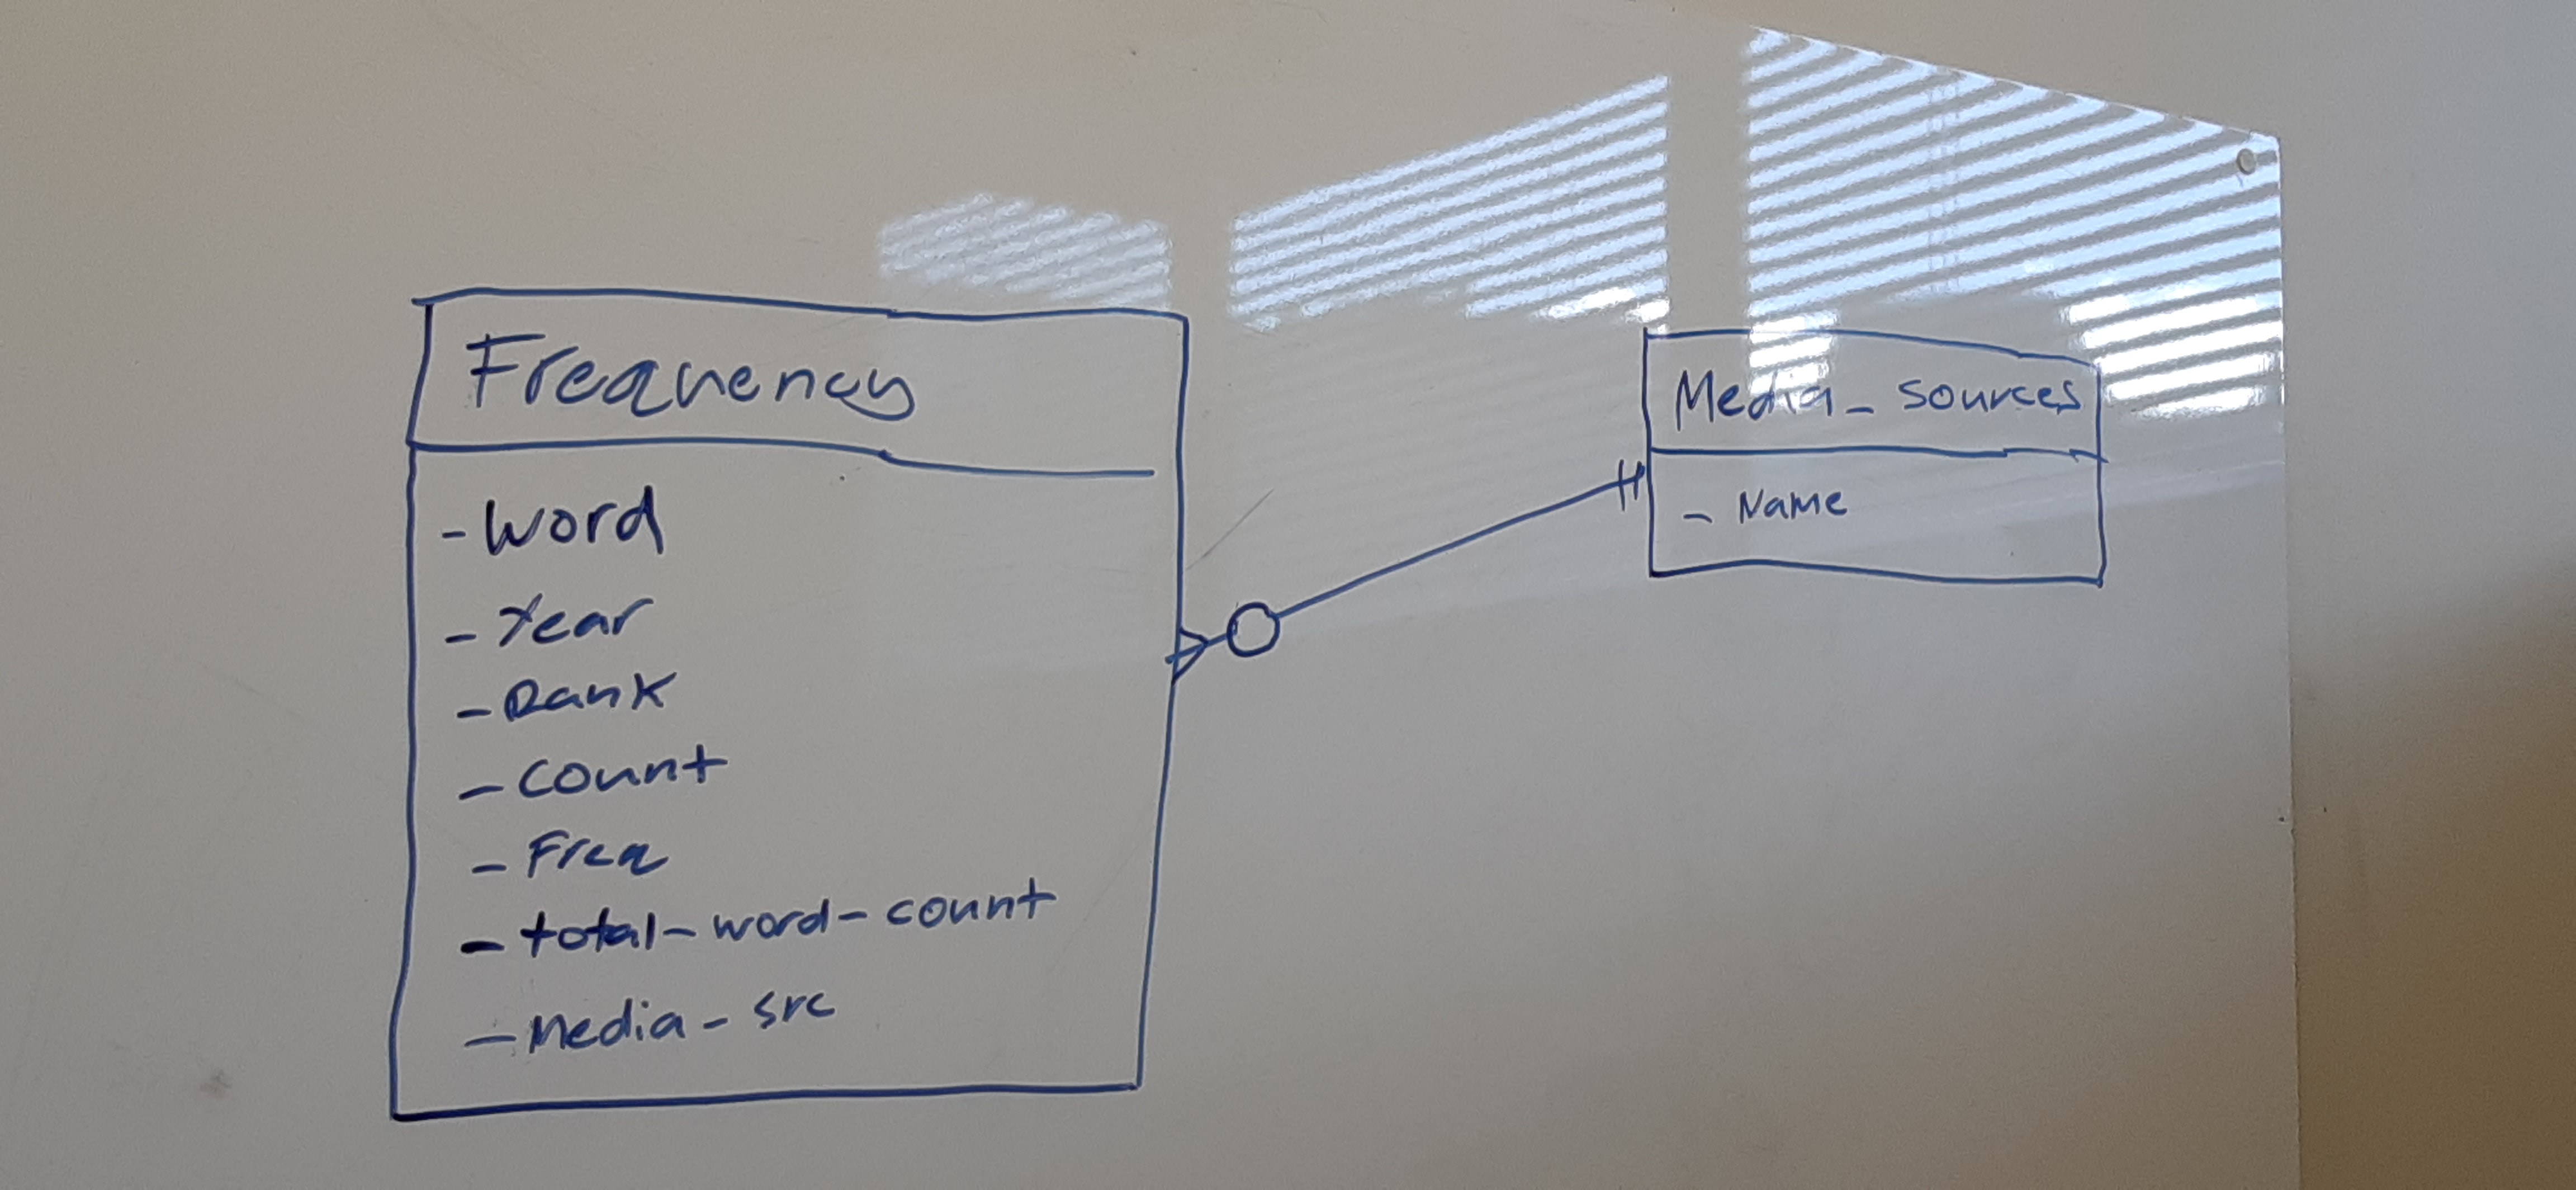 Frequency
- Word
- Year
- Rank
- Count
- Freq
- total-word-count
- Media-src
Media_sources
- Name